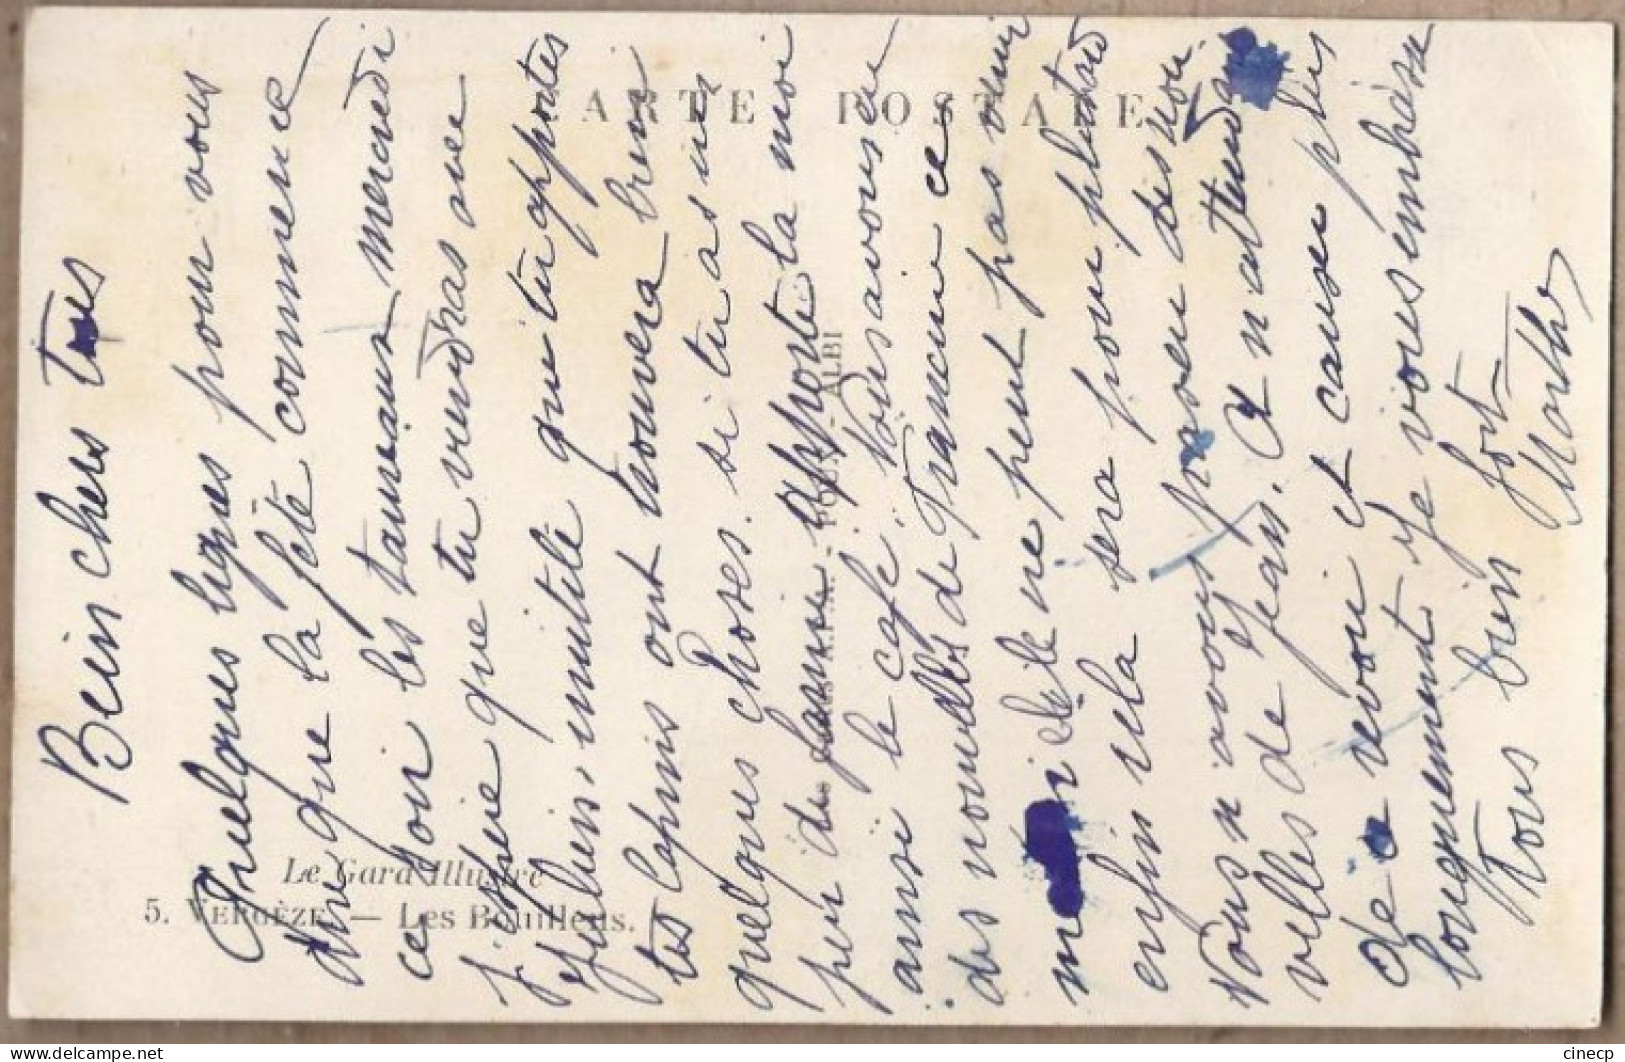 CARTE POSTALE
Le Gard Illustré
5. VERGÈZE. — Les Bouillens.
POUX - ALBI
Bein chers tous
Quelques lignes pour vous
dire que la fête commence
ce soir les taureaux mercredi
j'espère que tu viendras avec
Julien, inutile que tu apportes
tes lapins ont trouvera bien
quelques choses. si tu as un
peu de farine apporte la moi
ainsi le café. Nous avons eu
des nouvelles de Francine ce
matin elle ne peut pas venir
enfin cela sera pour plutard
Nous n'avons pas eu des nou-
velles de Jean. En attendant
de ce voir et causer plus
longuement je vous embrasse
tous bien fort
Marthe
cinecp